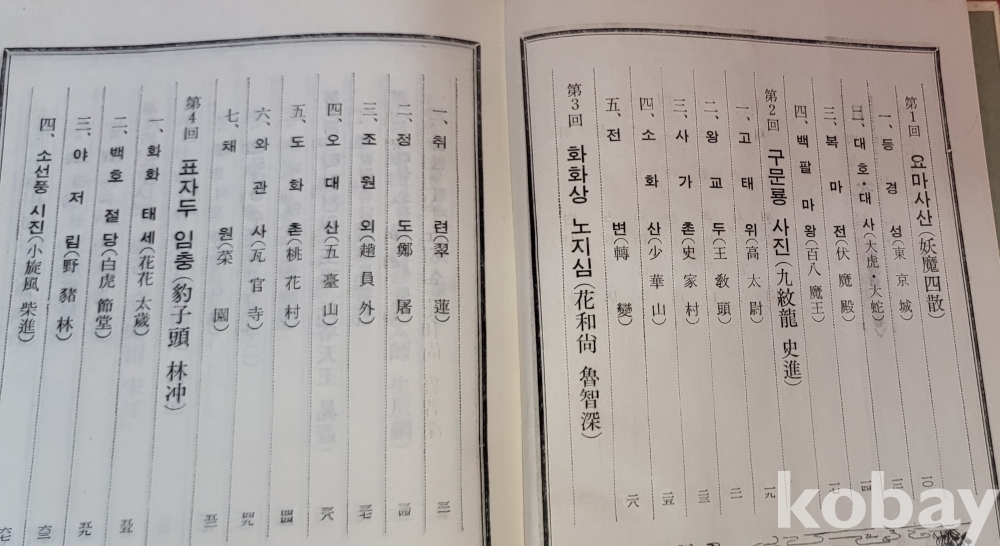 第1回 요마사산(妖魔四散) 一〇
一、동경성(東京城)
二、대호·대사(大虎·大蛇) 一四
三、복마전(伏魔殿) 一七
四、백팔마왕(百八魔王)
第2回 구문룡 사진(九紋龍 史進) 一九
一、고태위(高太尉)
二、왕교두(王敎頭)
三、사가촌(史家村)
四、소화산(少華山)
五、전변(轉變) 二八
第3回 화화상 노지심(花和尙 魯智深)
一、취련(翠蓮)
二、정도(鄭屠) 三四
三、조원외(趙員外) 三七
四、오대산(五臺山)
五、도화촌(桃花村) 四四
六、와관사(瓦官寺) 四九
七、채원(菜園)
第4回 표자두 임충(豹子頭 林冲)
一、화화태세(花花太歲)
二、백호절당(白虎節堂) 五五
三、야저림(野豬林) 五九
四、소선풍 시진(小旋風 柴進)
kobay